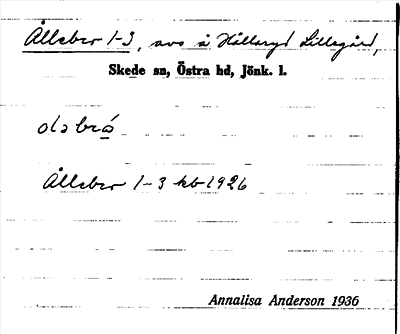 Ållebro 1-3, avs å Hållaryd Lillegård,
Skede sn, Östra hd, Jönk. l.
Ållebro 1-3 kb 1926
Annalisa Anderson 1936